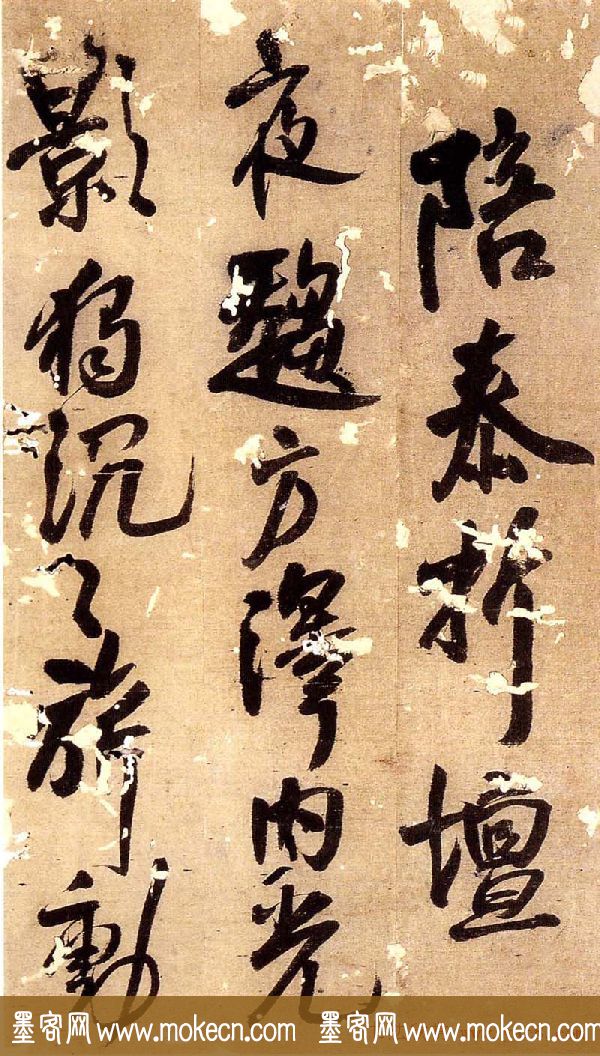 陪泰折壇
夜方澤内光
影獨沉々旂動
墨客网 www.mokecn.com 墨客网 www.mokecn.com